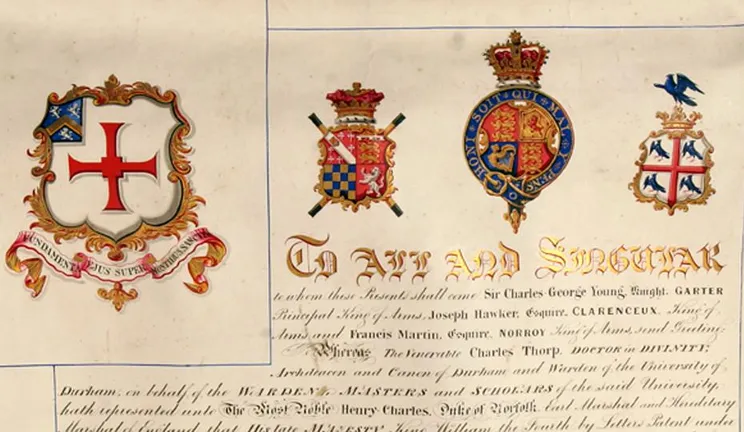 HONI SOIT QUI MAL Y PENSE
FUNDAMENTA EJUS SUPER MONTIBUS SANCTIS
To All and Singular
to whom these Presents shall come Sir Charles George Young, Knight, GARTER
Principal King of Arms, Joseph Hawker, Esquire, CLARENCEUX, King of
Arms, and Francis Martin, Esquire, NORROY King of Arms, send Greeting:
Whereas The Venerable Charles Thorp, DOCTOR in DIVINITY;
Archdeacon and Canon of Durham and Warden of the University of
Durham; on behalf of the WARDEN, MASTERS and SCHOLARS of the said University,
hath represented unto The Most Noble Henry Charles, Duke of Norfolk, Earl Marshal and Hereditary
Marshal of England, that His late MAJESTY King William the Fourth by Letters Patent under